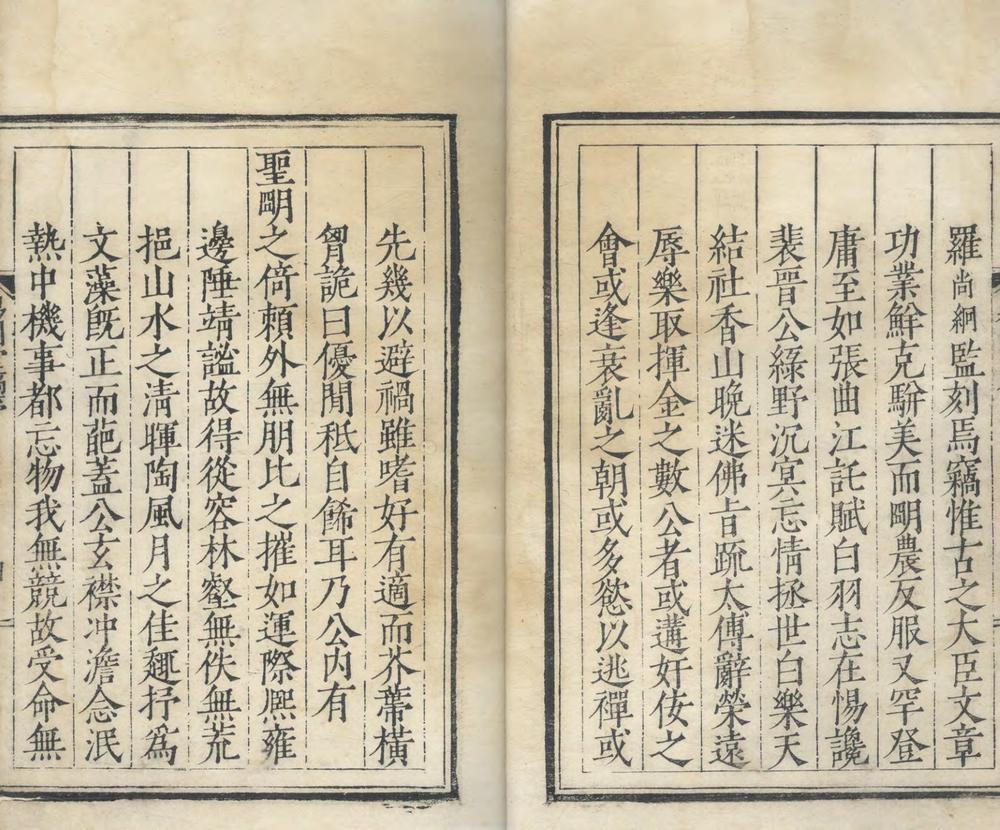 羅尚絅監刻焉竊惟古之大臣文章
功業鮮克駢美而朙農友服又罕登
庸至如張曲江託賦白羽志在惕讒
裴晉公綠野沉冥忘情拯世白樂天
結社香山晚迷佛旨疏太傅辭榮遠
辱樂取揮金之數公者或遘奸佞之
會或逢衰亂之朝或多慾以逃禪或
先幾以避禍雖嗜好有適而芥蔕橫
胷詭曰優閒秪自餙耳乃公内有
聖朙之倚賴外無朋比之摧如運際熈雍
邊陲靖謐故得從容林壑無佚無荒
挹山水之清暉陶風月之佳趣抒為
文藻旣正而葩蓋公玄襟冲澹念泯
熱中機事都忘物我無競故受命無